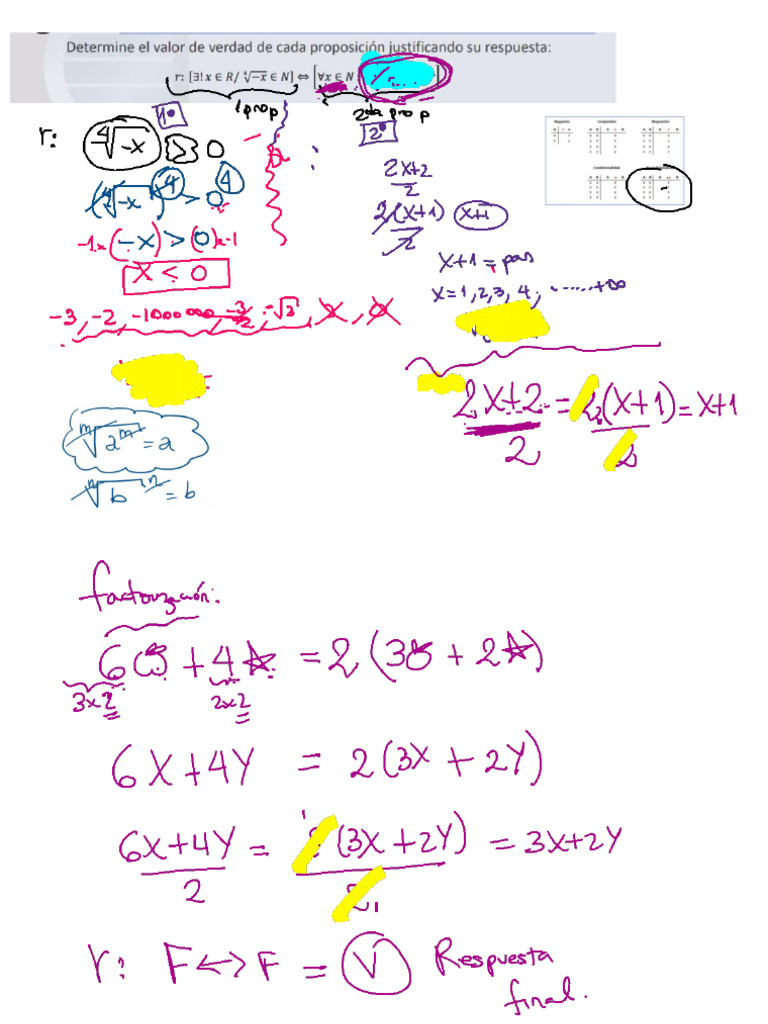 Determine el valor de verdad de cada proposición justificando su respuesta:
r: [∃! x ∈ R/ ∜−x ∈ N] ⇔ [∀x ∈ N
1 prop 2da prop
1° 2°
r: ∜-x ≥ 0
(∜-x)^4 > 0^4
-1x(-x) > (0)x-1
x < 0
-3, -2, -1000000 -3/2, -√2, x, 0
2x+2/2
2(x+1)/2 x+1
x+1 = par
x=1,2,3,4, ......+∞
2x+2/2 = 2(x+1)/2 = x+1
ᵐ√aᵐ = a
ⁿ√bⁿ = b
factorización:
6 + 4☆ = 2(38 + 2☆)
3x2 2x2
6x+4y = 2(3x + 2y)
6x+4y/2 = (3x+2y)/2 = 3x+2y
r: F↔F = V Respuesta
final.